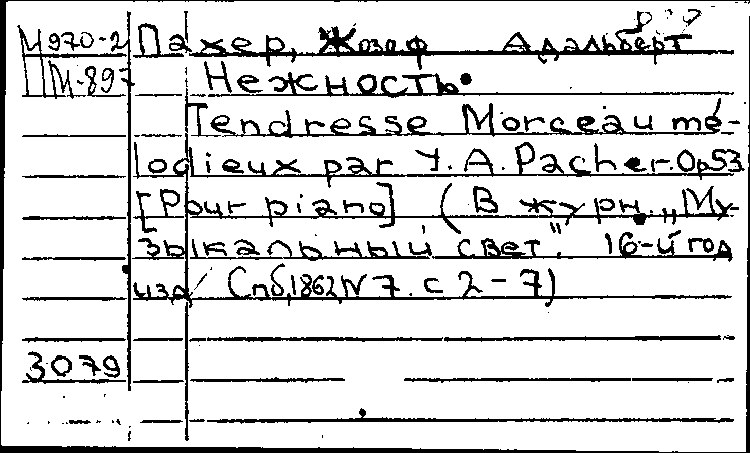 М970-2 Пахер, Жозеф Адальберт
ПМ-897 Нежность.
Tendresse Morceau mé-
lodieux par J. A. Pacher. Op53
[Pour piano] (В журн. „Му-
зыкальный свет". 16-й год
изд Спб, 1862, N 7. с 2-7)
3079